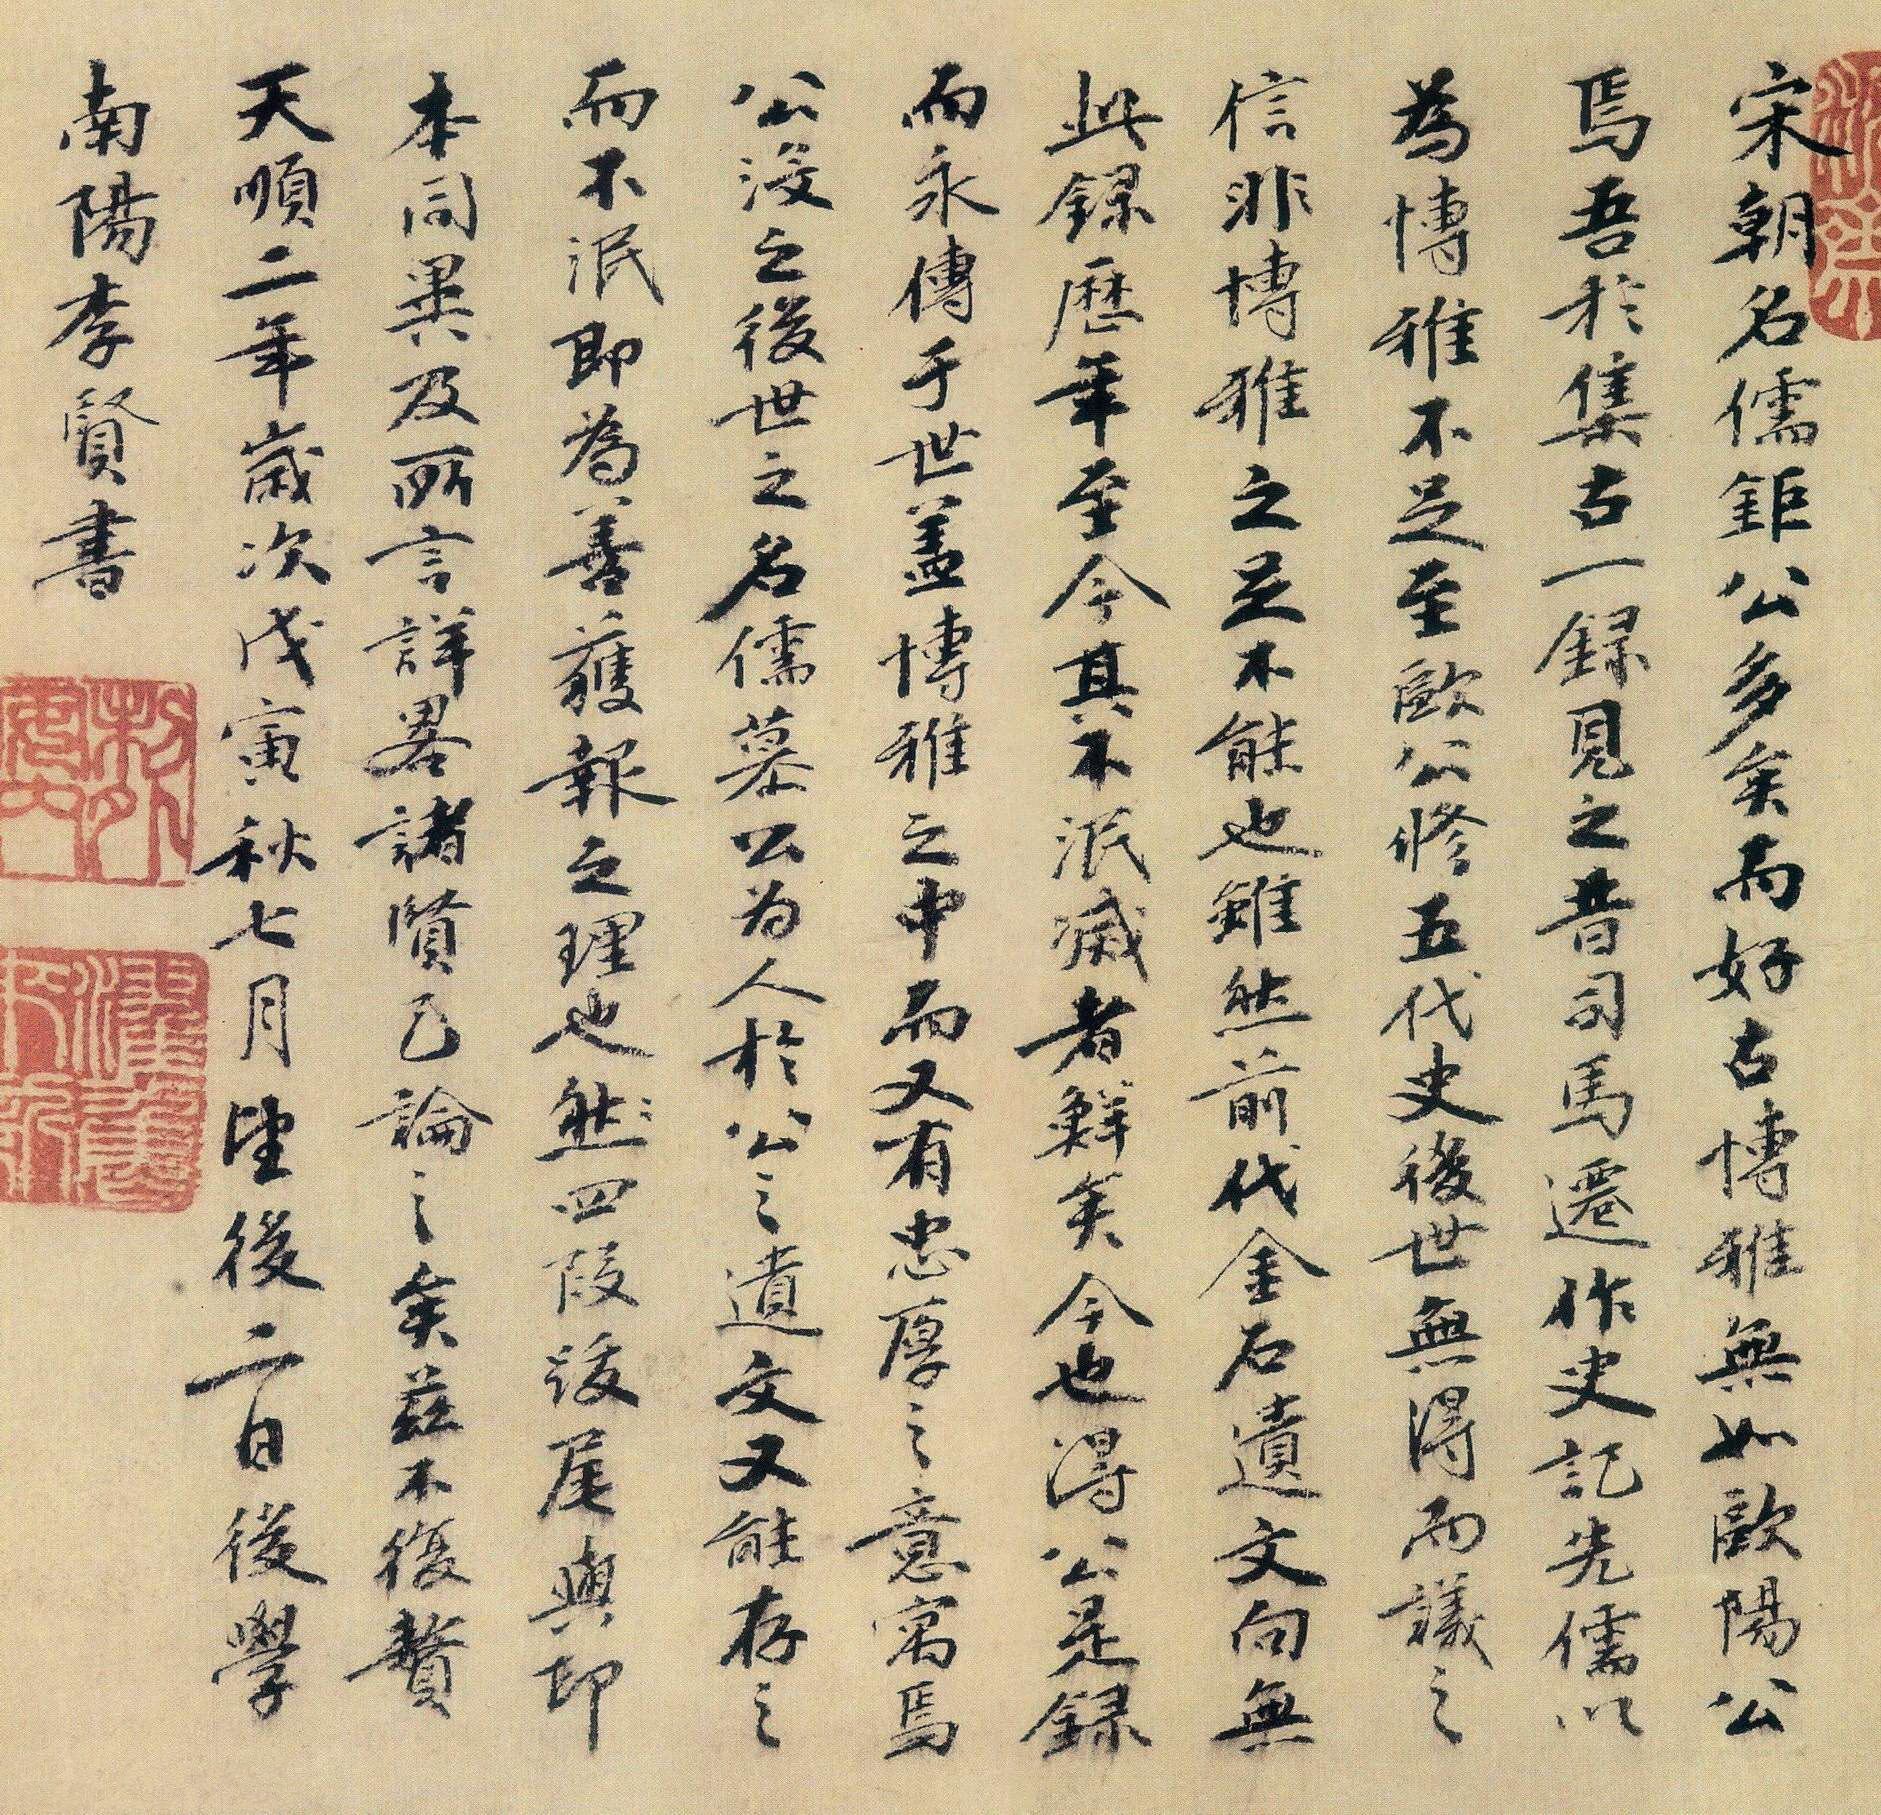 宋朝名儒鉅公多矣而好古博雅無如歐陽公
焉吾於集古一録見之昔司馬遷作史記先儒以
為博雅不足至歐公修五代史後世無得而議之
信非博雅之足不能也雖然前代金石遺文向無
此録歷年至今其不泯滅者鮮矣今也得公是録
而永傳于世盖博雅之中而又有忠厚之意寓焉
公没之後世之名儒慕公为人於公之遺文又能存之
而不泯即為善獲報之理也然四段後尾與印
本同異及所言詳畧諸賢已論之矣兹不復贅
天順二年歲次戊寅秋七月望後二日後學
南陽李賢書